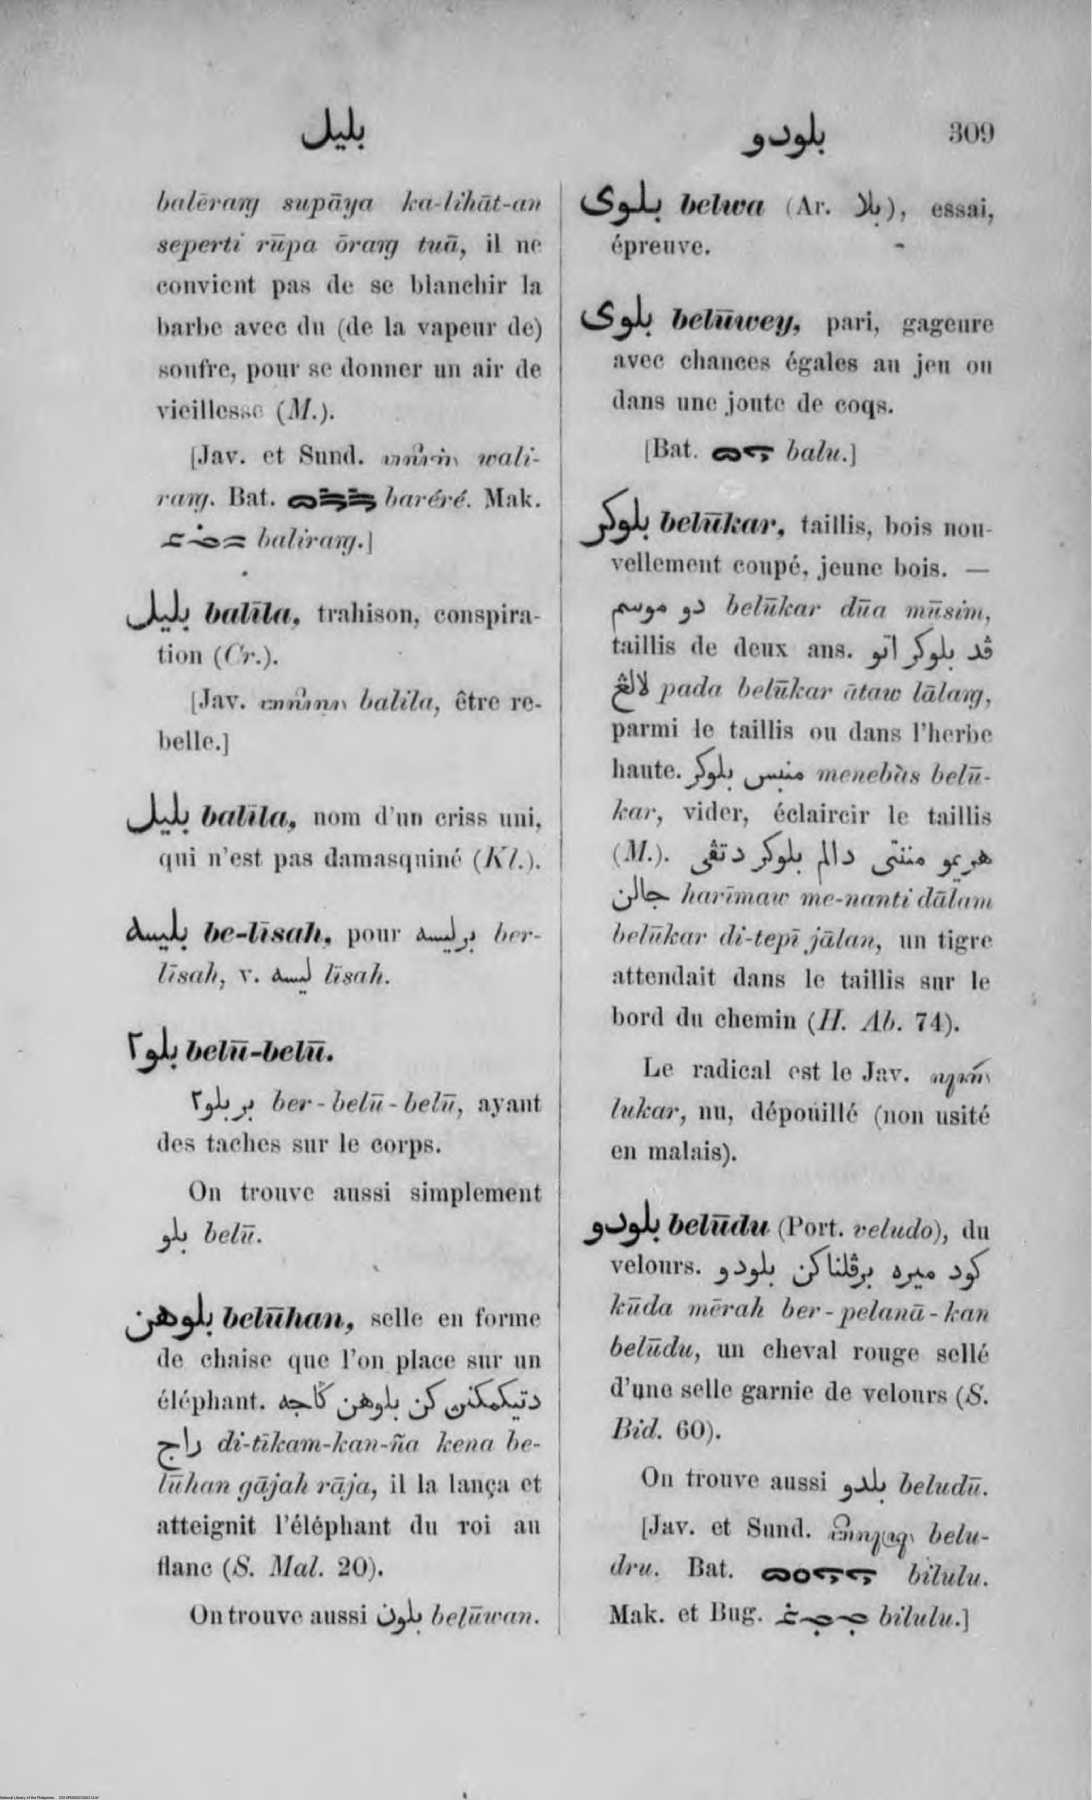 بليل
بلودو 309
balēraṃg supāya ka-lihāt-an
seperti rūpa ōraṃg tuā, il ne
convient pas de se blanchir la
barbe avec du (de la vapeur de)
soufre, pour se donner un air de
vieillesse (M.).
[Jav. et Sund. wali-
raṃg. Bat. baréré. Mak.
baliraṃg.]
بليل balīla, trahison, conspira-
tion (Cr.).
[Jav. balila, être re-
belle.]
بليل balīla, nom d'un criss uni,
qui n'est pas damasquiné (Kl.).
بليسه be-līsah, pour برليسه ber-
līsah, v. ليسه līsah.
بلو٢ belū-belū.
بربلو٢ ber-belū-belū, ayant
des taches sur le corps.
On trouve aussi simplement
بلو belū.
بلوهن belūhan, selle en forme
de chaise que l'on place sur un
éléphant. دتيكمكنن كن بلوهن ڬاجه
راج di-tīkam-kan-ña kena be-
lūhan gājah rāja, il la lança et
atteignit l'éléphant du roi au
flanc (S. Mal. 20).
On trouve aussi بلون belūwan.
بلوى belwa (Ar. بلا), essai,
épreuve.
بلوى belūwey, pari, gageure
avec chances égales au jeu ou
dans une joute de coqs.
[Bat. balu.]
بلوكر belūkar, taillis, bois nou-
vellement coupé, jeune bois. —
دو موسم belūkar dūa mūsim,
taillis de deux ans. ڤد بلوكر اتو
لالڠ pada belūkar ātaw lālaṃg,
parmi le taillis ou dans l'herbe
haute. منبس بلوكر menebàs belū-
kar, vider, éclaircir le taillis
(M.). هريمو مننتى دالم بلوكر دتڤى
جالن harīmaw me-nanti dālam
belūkar di-tepī jālan, un tigre
attendait dans le taillis sur le
bord du chemin (H. Ab. 74).
Le radical est le Jav.
lukar, nu, dépouillé (non usité
en malais).
بلودو belūdu (Port. veludo), du
velours. كود ميره برڤلناكن بلودو
kūda mērah ber-pelanā-kan
belūdu, un cheval rouge sellé
d'une selle garnie de velours (S.
Bid. 60).
On trouve aussi بلدو beludū.
[Jav. et Sund. belu-
dru. Bat. bilulu.
Mak. et Bug. bilulu.]